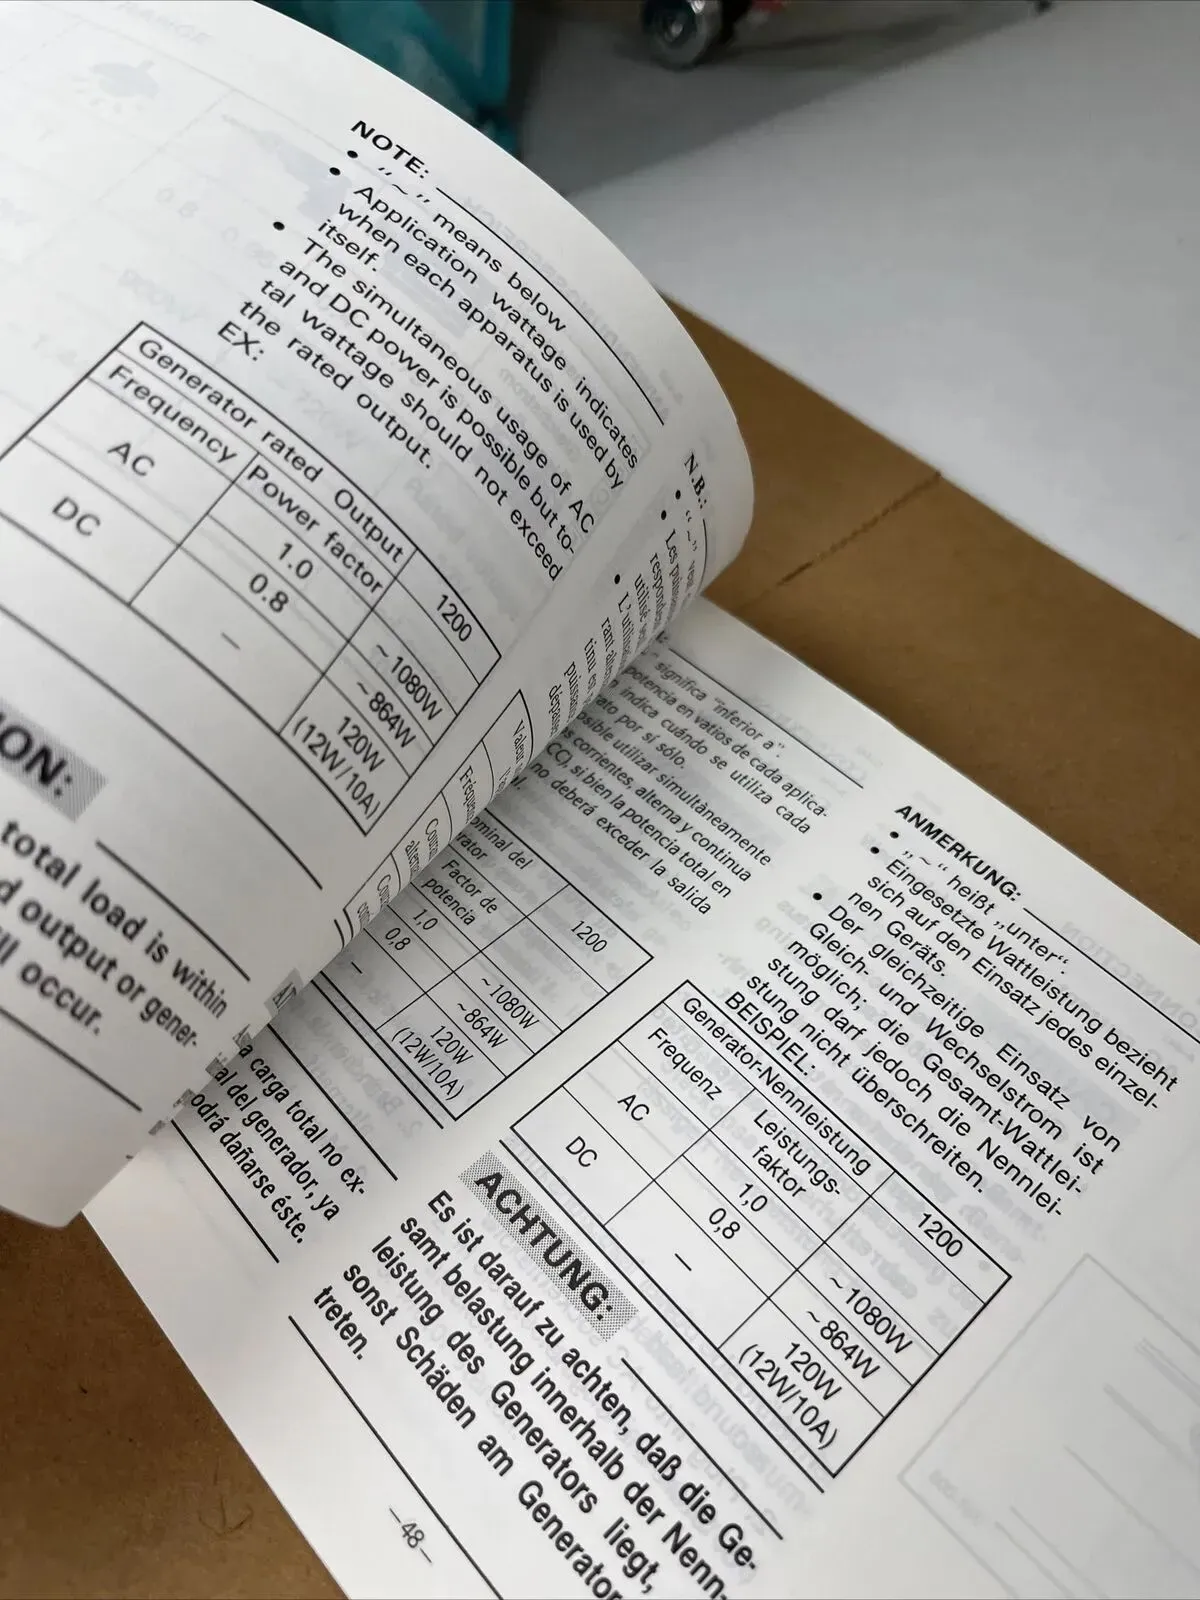 NOTE:
• "~" means below
• Application wattage indicates
when each apparatus is used by
itself.
• The simultaneous usage of AC
and DC power is possible but to-
tal wattage should not exceed
the rated output.
EX:
Generator rated Output 1200
Frequency Power factor
AC 1.0 ~1080W
0.8 ~864W
DC – 120W
(12W/10A)
ON:
total load is within
output or gener-
occur.
N.B.:
• "~"
• Les
• L'utilisa
significa "inferior a".
potencia en vatios de cada aplica-
indica cuándo se utiliza cada
por sí sólo.
utilizar simultàneamente
corrientes, alterna y continua
CC), si bien la potencia total en
no deberá exceder la salida
nominal del
1200
Factor de
potencia
1,0 ~1080W
0,8 ~864W
– 120W
(12W/10A)
carga total no ex-
del generador, ya
dañarse éste.
ANMERKUNG:
• „~“ heißt „unter“.
• Eingesetzte Wattleistung bezieht
sich auf den Einsatz jedes einzel-
nen Geräts.
• Der gleichzeitige Einsatz von
Gleich- und Wechselstrom ist
möglich; die Gesamt-Wattlei-
stung darf jedoch die Nennlei-
stung nicht überschreiten.
BEISPIEL:
Generator-Nennleistung 1200
Frequenz Leistungs-
faktor
AC 1,0 ~1080W
0,8 ~864W
DC – 120W
(12W/10A)
ACHTUNG:
Es ist darauf zu achten, daß die Ge-
samt belastung innerhalb der Nenn-
leistung des Generators liegt,
sonst Schäden am Generator
treten.
–48–